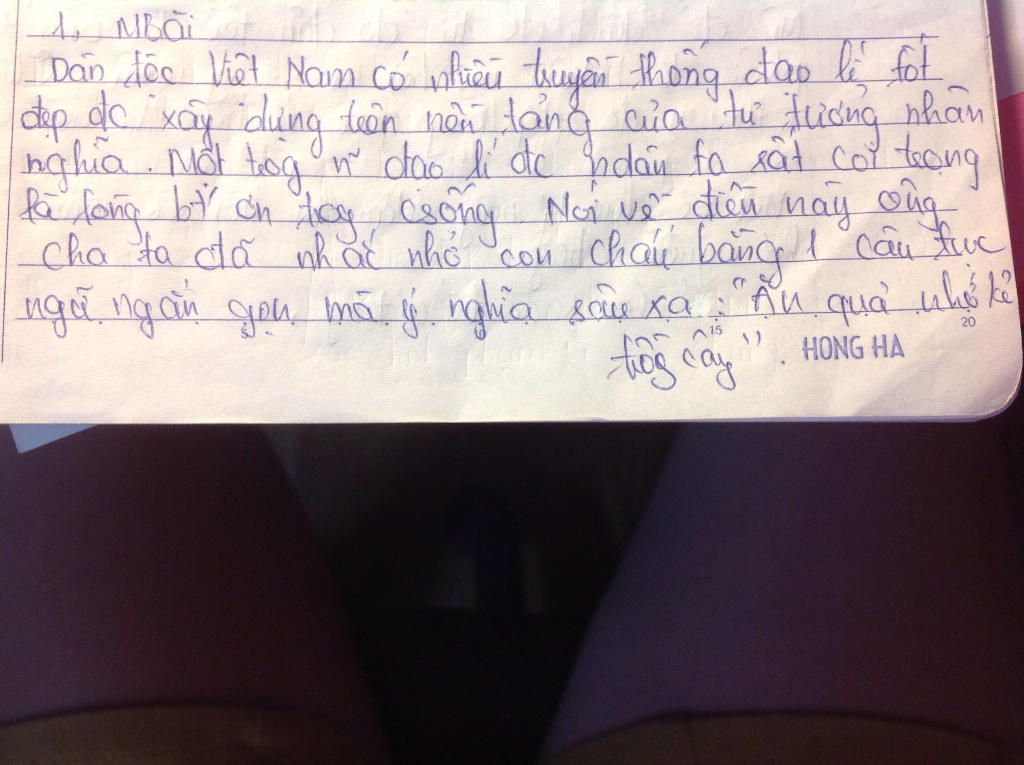 1, MBài
Dân tộc Việt Nam có nhiều truyền thống đạo lí tốt
đẹp đc xây dựng trên nền tảng của tư tưởng nhân
nghĩa. Một trog n~ đạo lí đc ndân ta rất coi trọng
là lòng b` ơn trog csống. Nói về điều này ông
cha ta đã nhắc nhở con cháu bằng 1 câu tục
ngữ ngắn gọn mà ý nghĩa sâu xa: "Ăn quả nhớ kẻ
trồg cây".
15
20
HONG HA